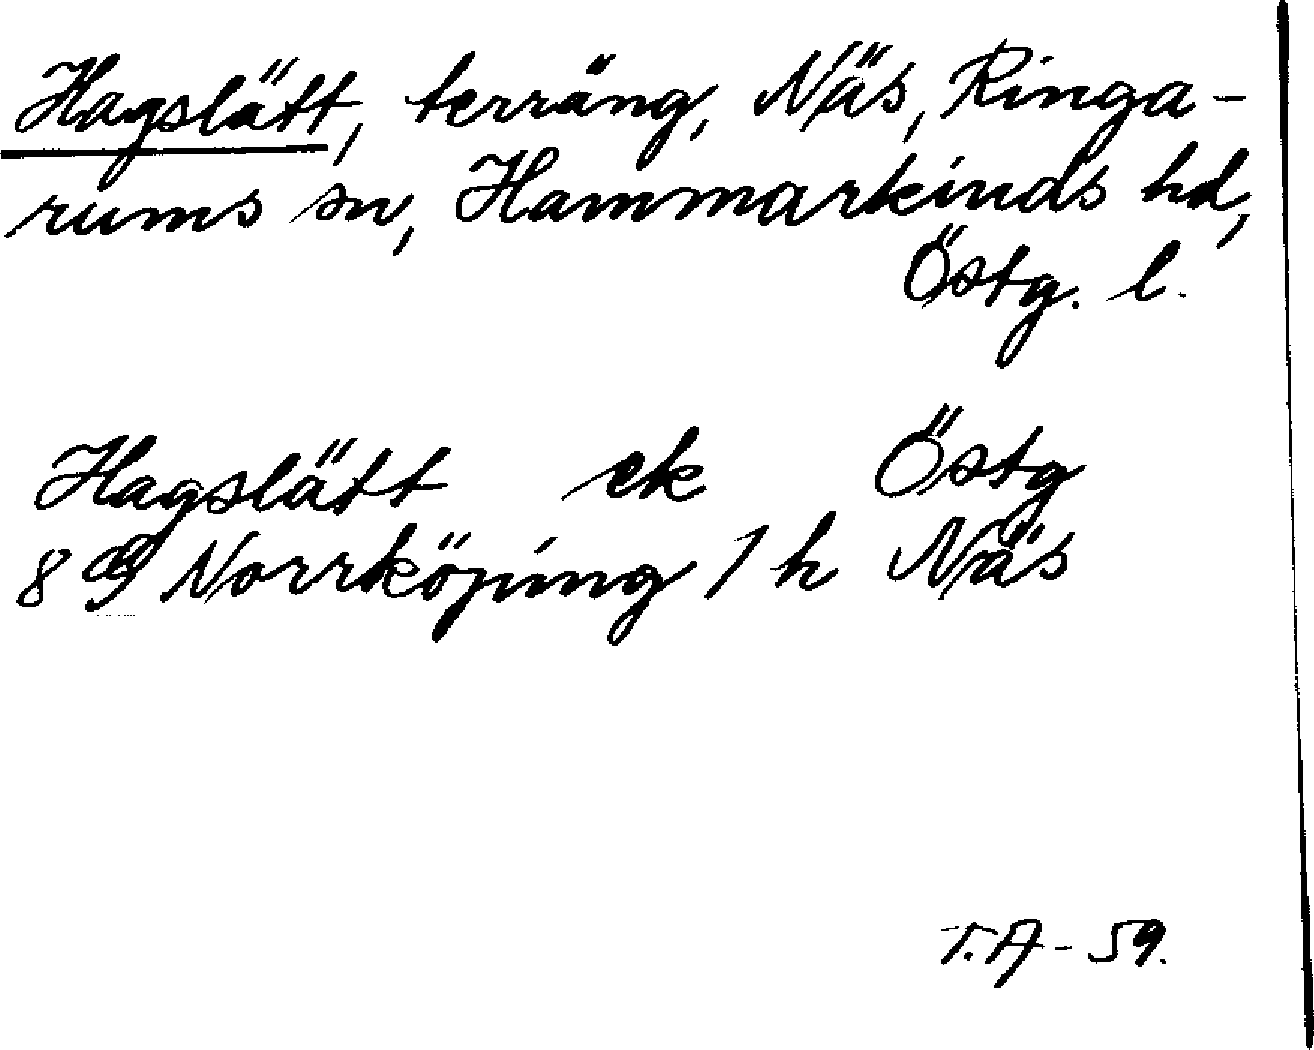 Hagslätt, terräng, Näs, Ringa-
rums sn, Hammarkinds hd,
Östg. l.
Hagslätt ek Östg
8 G Norrköping 1 h Näs
T.A - 59.